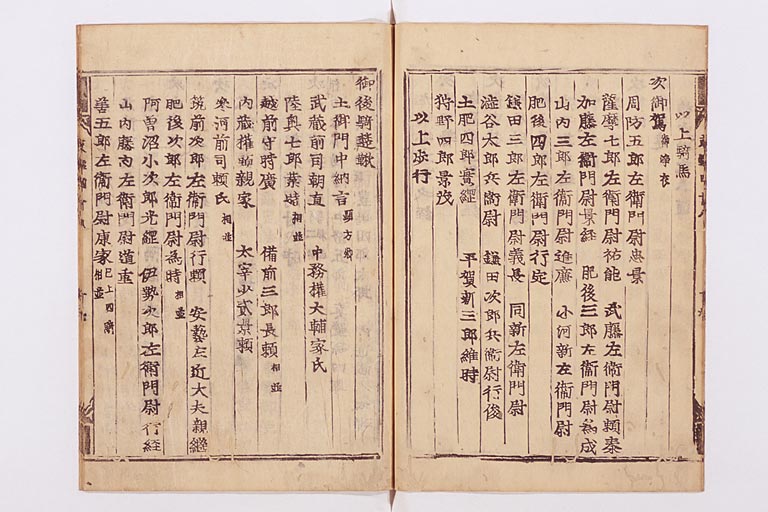 以上騎馬
次御駕 御浄衣
周防五郎左衞門尉忠景
薩摩七郎左衞門尉祐能 武藤左衞門尉頼泰
加藤左衞門尉景経 肥後三郎左衞門尉為成
山内三郎左衞門尉進廉 小河新左衞門尉
肥後四郎左衞門尉行定
鎌田三郎左衞門尉義長 同新左衞門尉
澁谷太郎兵衞尉 鎌田次郎兵衞尉行俊
土肥四郎實綱 平賀新三郎維時
狩野四郎景茂
以上歩行
御後騎
土御門中納言 顕方卿
武蔵前司朝直 中務權大輔家氏
陸奥七郎業時 相並
越前守時廣 備前三郎長頼 相並
内蔵權頭親家 太宰少貳景頼
参河前司頼氏 相並
筑前次郎左衞門尉行頼 安藝左近大夫親継
肥後次郎左衞門尉為時 相並
阿曽沼小次郎光綱 伊勢次郎左衞門尉行経
山内藤内左衞門尉道重
善五郎左衞門尉康家 相並 已上四